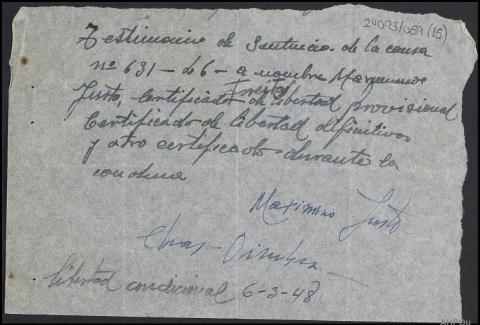 24093/009 (15)
Testimonio de Sentencia de la causa
nº 631-46- a nombre Maximino
Justo, Certificado de libertad provisional
Certificado de libertad definitiva
y otro certificado durante la
condena
Maximino Justo
libertad condicional 6-3-48